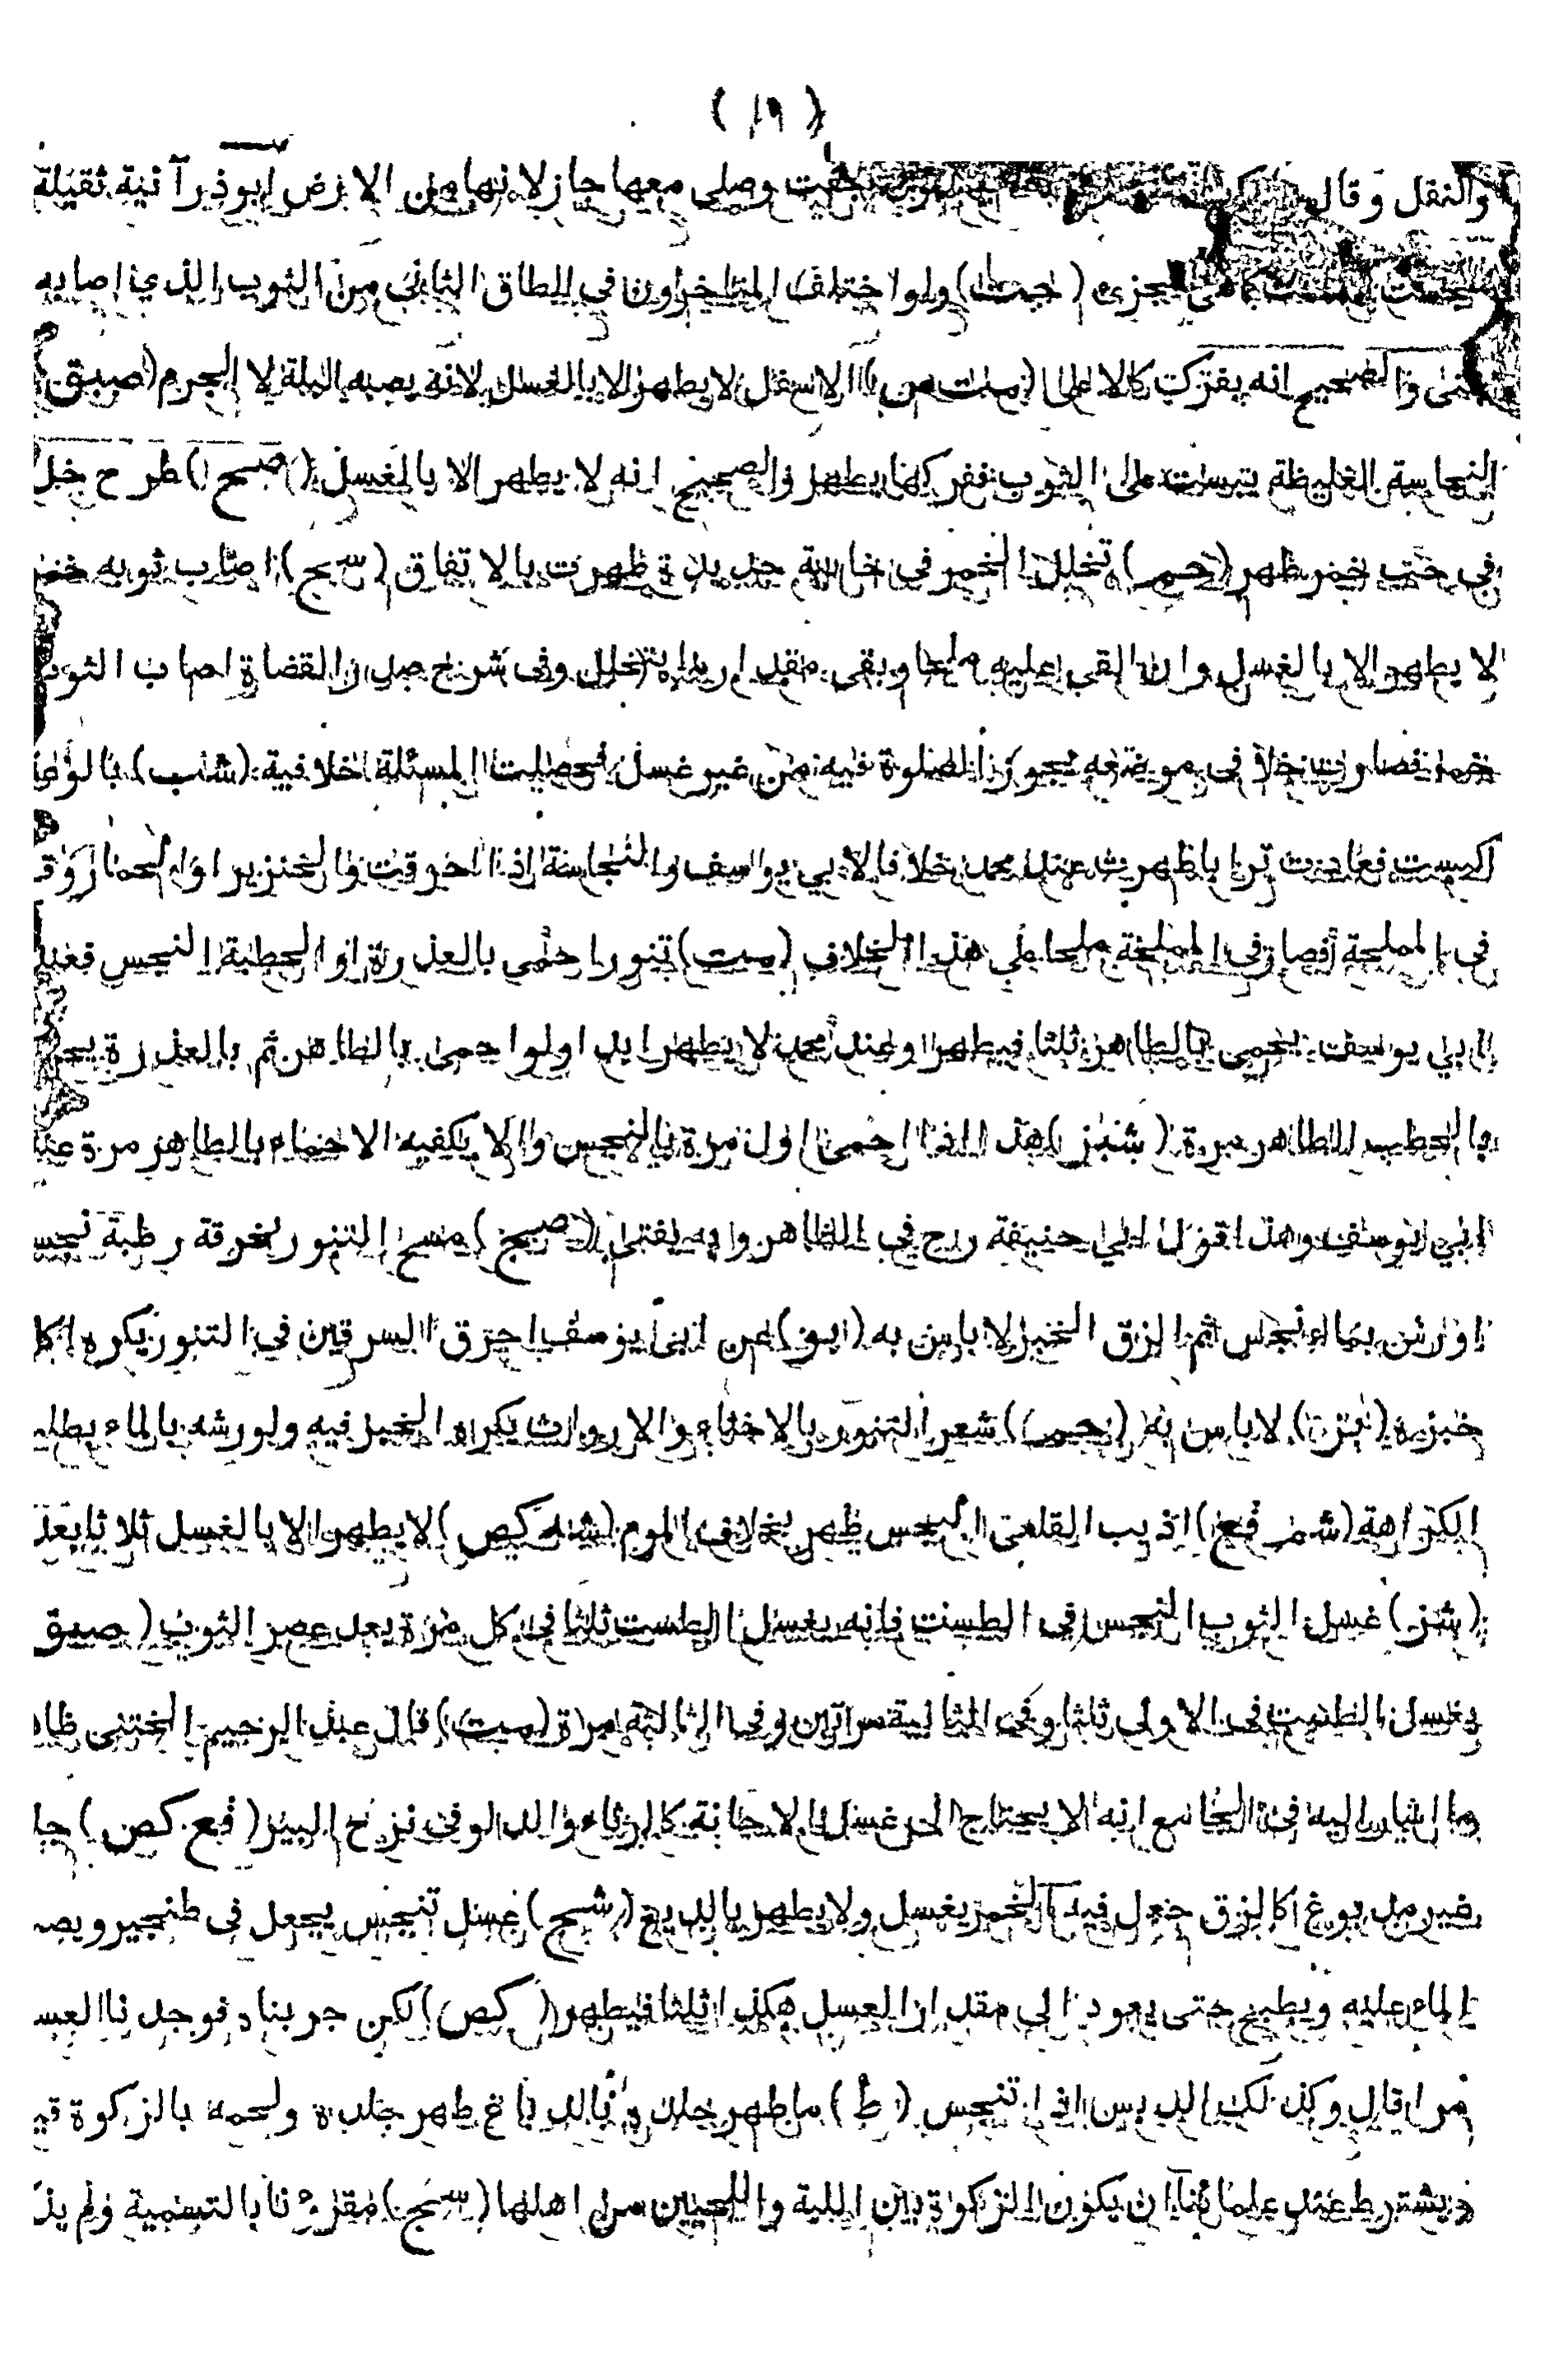 ( ١٩ )
والنقل وقال جفت وصلى معها جاز لانها من الارض ابوذر آنية ثقيلة
يجزئ (جت) ولو اختلف المتاخرون في الطاق الثاني من الثوب الذي اصابه
المنى والصحيح انه بفركت كالاعلى (مت من) الاسفل لا يطهر الا بالغسل لانه يصبه البلة لا الجرم (صبق)
النجاسة الغليظة يبست على الثوب ففركها يطهر والصحيح انه لا يطهر الا بالغسل (صبح) طرح خل
في حب خمر طهر (حم) تخلل الخمر في خابية جديدة طهرت بالاتفاق (سبج) اصاب ثوبه خمر
لا يطهر الا بالغسل وان القى عليه ملحا وبقي مقدار ما يتخلل وفى شرح صدر القضاة اصاب الثوب
خمرا فصارت خلا في موضعه يجوز الصلوة فيه من غير غسل فحصلت المسئلة خلافية (شب) بالوعة
كبست فعادت ترابا طهرت عند محمد خلافا لابي يوسف والنجاسة اذا احرقت والخنزير او الحمار وقع
في المملحة فصار في المملحة ملحا على هذا الخلاف (مت) تنورا حمي بالعذرة او الحطبة النجس فعند
ابي يوسف يحمى بالطاهر ثلثا فيطهر وعند محمد لا يطهر ابدا ولو احمى بالطاهر ثم بالعذرة يحمى
بالحطب الطاهر مرة (شبز) هذا اذا احمى اول مرة بالنجس والا يكفيه الاحماء بالطاهر مرة عند
ابي يوسف وهذا قول ابي حنيفة رح في الظاهر وبه يفتى (صبج) مسح التنور بخرقة رطبة نجسة
او رش بماء نجس ثم الزق الخبز لا باس به (ابو) عن ابى يوسف احرق السرقين في التنور يكره اكل
خبزه (نز) لا باس به (حم) شعر التنور بالاخثاء والارواث يكره الخبز فيه ولو رشه بالماء بطلت
الكراهة (شم قع) اذيب القلعى النجس طهر بخلاف الموم (شه كص) لا يطهر الا بالغسل ثلاثا بعد
(شز) غسل الثوب النجس فى الطست فانه يغسل الطست ثلثا فى كل مرة بعد عصر الثوب (صبق
يغسل الطست فى الاولى ثلثا وفي الثانية مراتين وفي الثالثة مرة (مت) قال عبد الرحيم الختنى ظاهر
ما اشار اليه فى الجامع انه لا يحتاج الى غسل الاجانة كالرشاء والدلو في نزح البير (قع كص) جلد
غير مدبوغ كالزق جعل فيه الخمر يغسل ولا يطهر بالدبغ (شبح) عسل تنجس يجعل في طنجير ويصب
الماء عليه ويطبخ حتى يعود الى مقدار العسل هكذا ثلثا فيطهر (كص) لكن جربناه فوجدنا العسل
مرا قال وكذلك الدبس اذا تنجس (ط) ما طهر جلده بالدباغ طهر جلده ولحمه بالزكوة قيل
ويشترط عند علمائنا ان يكون الزكوة بين اللبة واللحيين من اهلها (سبج) مقرونا بالتسمية ولم يذكر